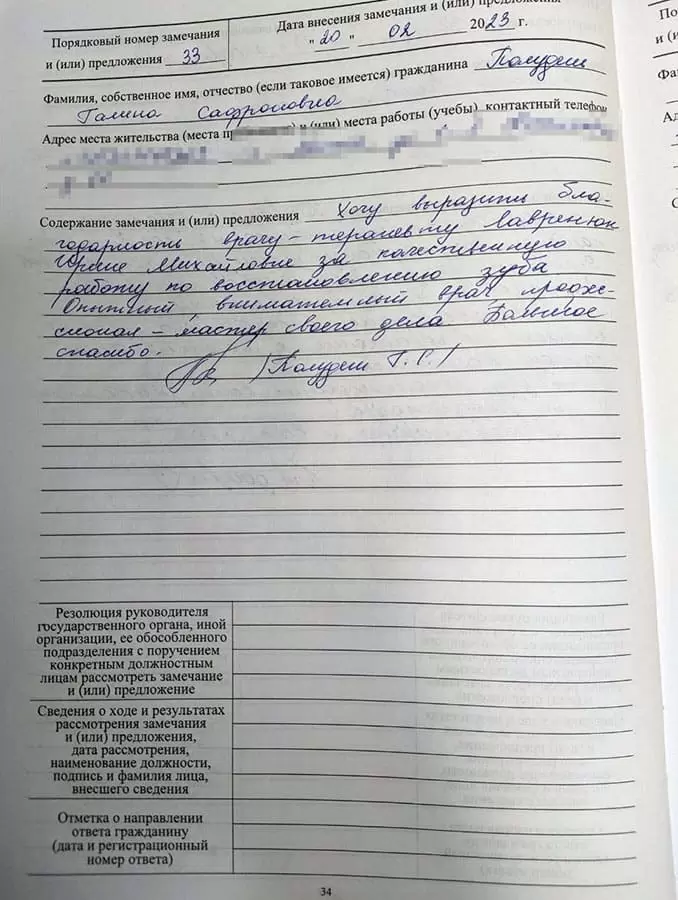 Порядковый номер замечания
и (или) предложения 33
Дата внесения замечания и (или) предложения
" 20 " 02 2023 г.
Фамилия, собственное имя, отчество (если таковое имеется) гражданина Полудеш
Галина Сафроновна
Адрес места жительства (места и (или) места работы (учебы), контактный телефон
Содержание замечания и (или) предложения Хочу выразить бла-
годарность врачу-терапевту Лавренюк
Ирине Михайловне за качественную
работу по восстановлению зуба
Опытный внимательный врач, профес-
сионал – мастер своего дела. Большое
спасибо.
/Полудеш Г.С./
Резолюция руководителя
государственного органа, иной
организации, ее обособленного
подразделения с поручением
конкретным должностным
лицам рассмотреть замечание
и (или) предложение
Сведения о ходе и результатах
рассмотрения замечания
и (или) предложения,
дата рассмотрения,
наименование должности,
подпись и фамилия лица,
внесшего сведения
Отметка о направлении
ответа гражданину
(дата и регистрационный
номер ответа)
34